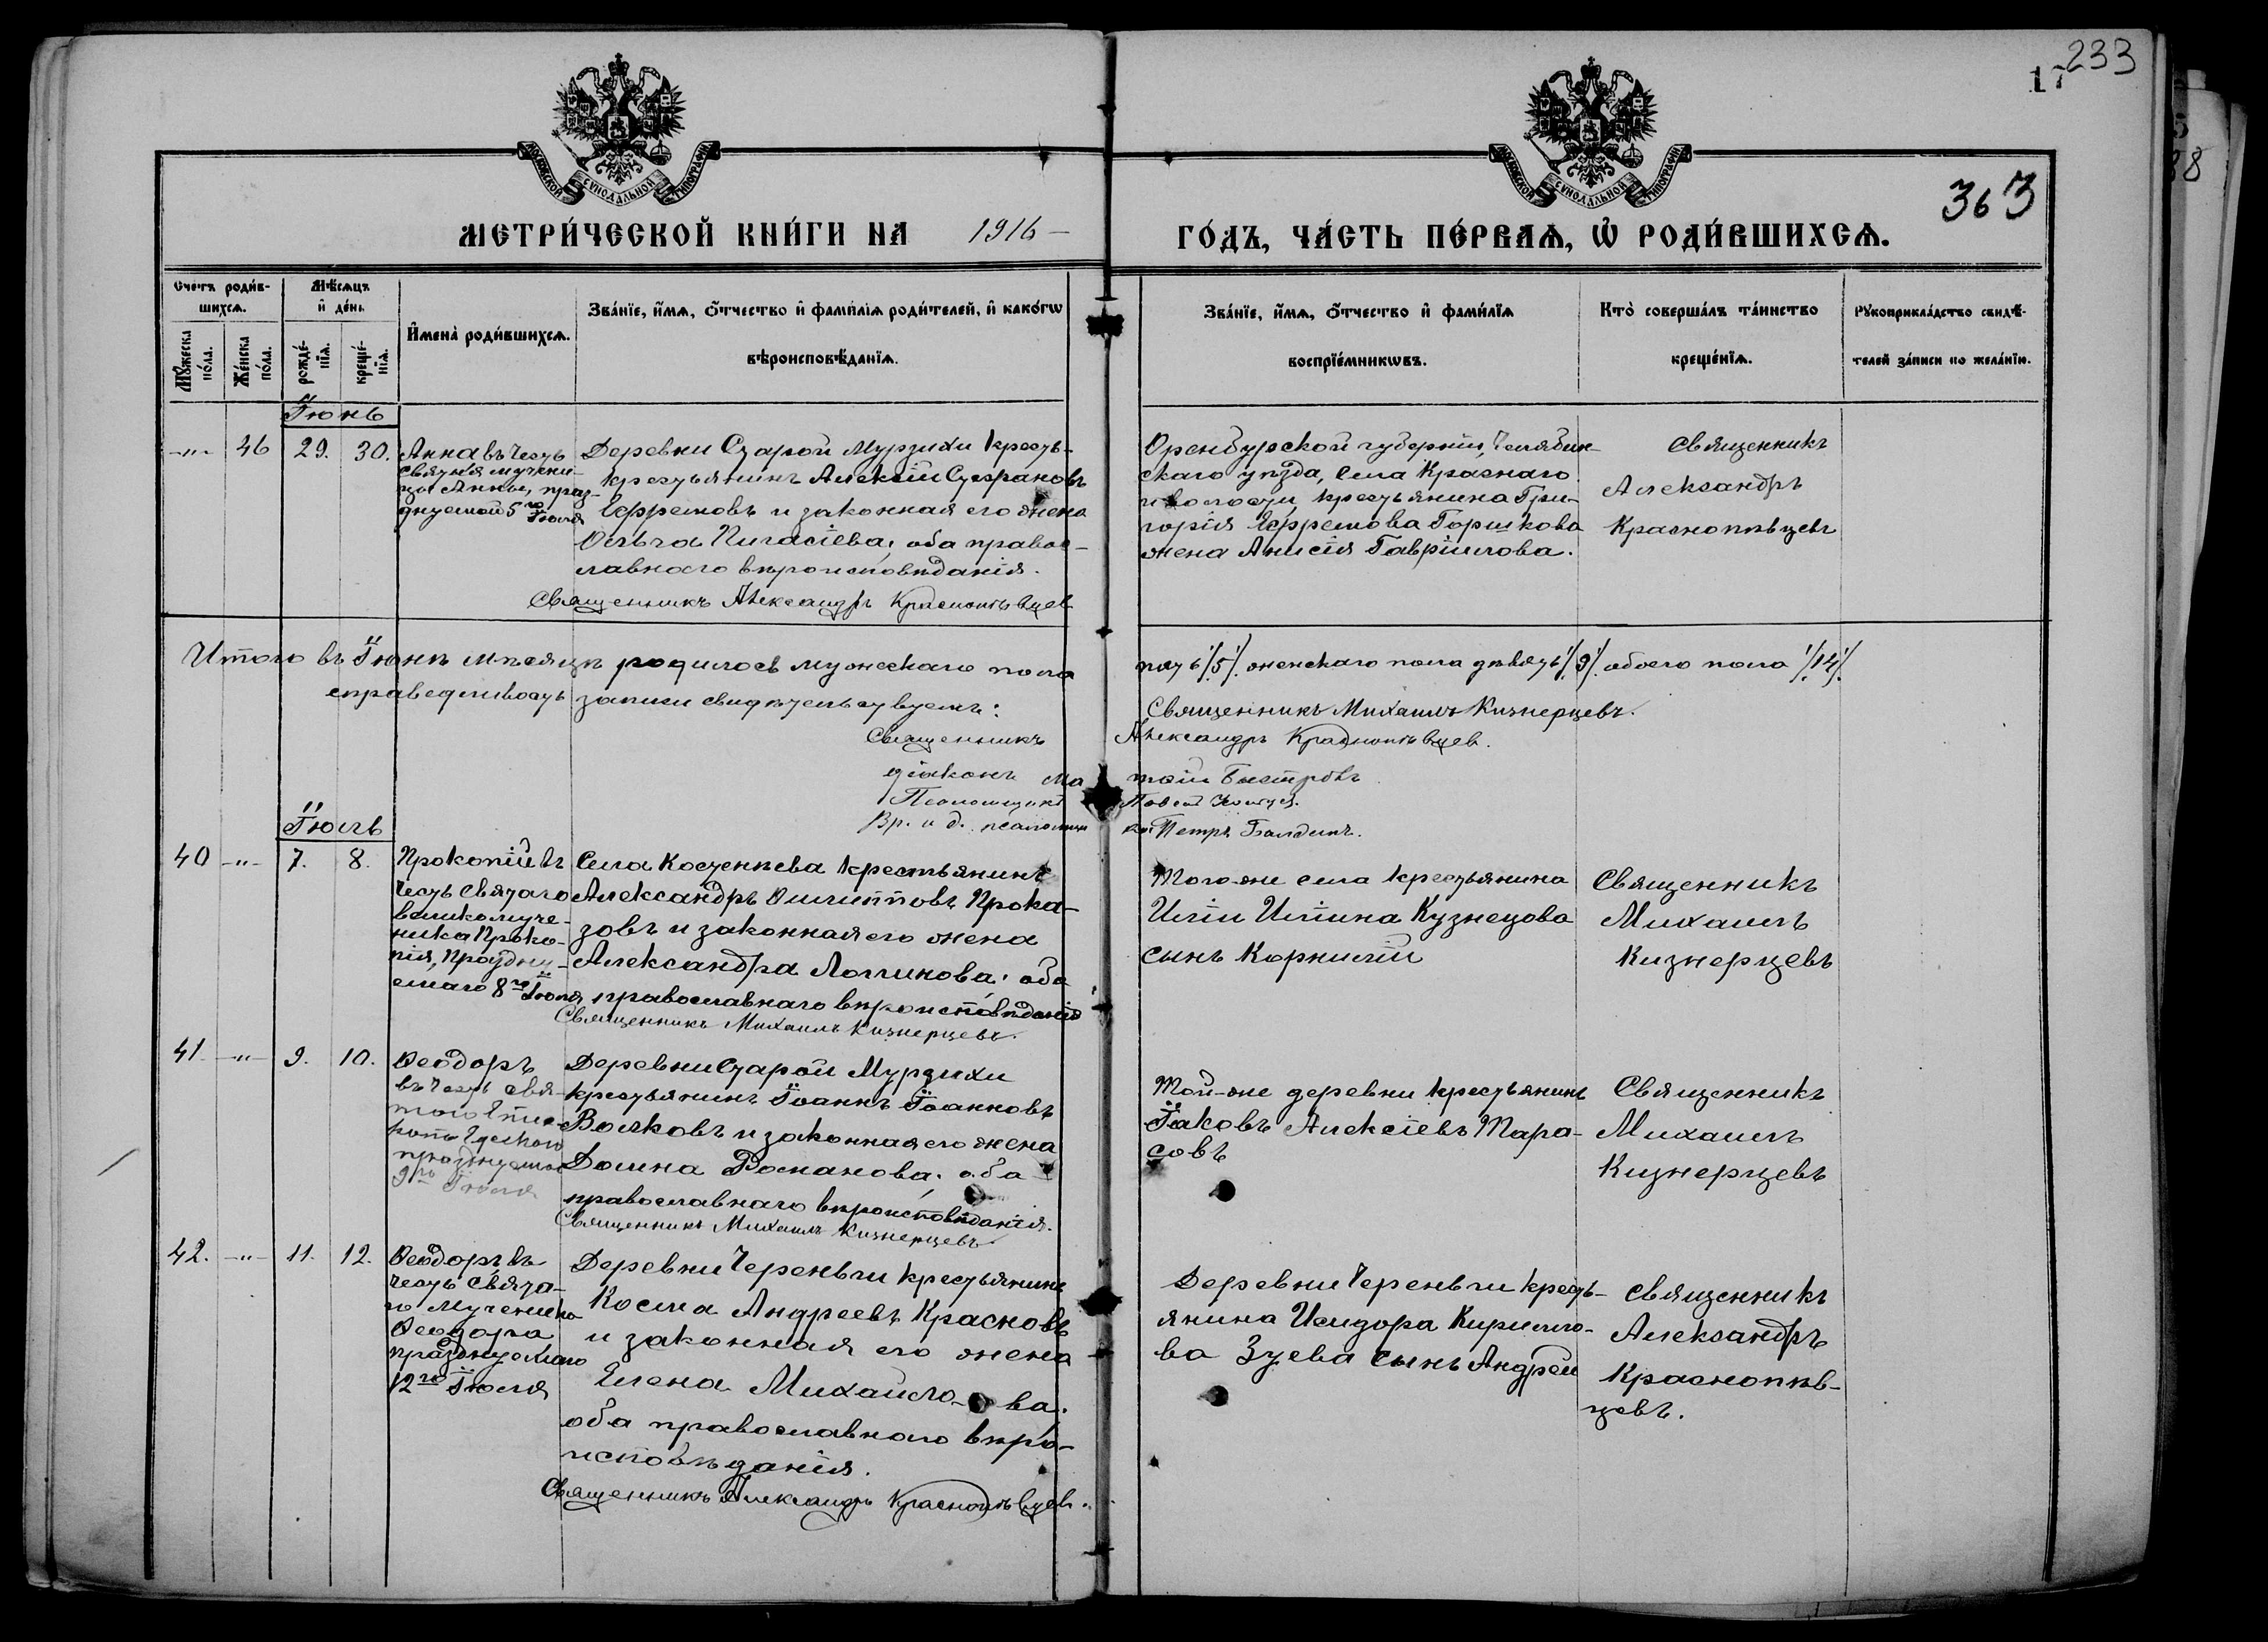 233
17
363
МОСКОВСКОЙ СѴНОДАЛЬНОЙ ТИПОГРАФІИ
МОСКОВСКОЙ СѴНОДАЛЬНОЙ ТИПОГРАФІИ
МЕТРИ́ЧЕСКОЙ КНИ́ГИ НА 1916 —
ГО́ДЪ, ЧА́СТЬ ПЕ́РВАѦ, Ѡ҆ РОДИ́ВШИХСѦ.
Сче́тъ роди́в-
шихсѧ.
Мꙋ́жеска по́ла.
Же́нска по́ла.
Мѣ́сѧцъ
и҆ де́нь.
рожде́-
нїѧ.
креще́-
нїѧ.
И҆мена̀ роди́вшихсѧ.
Зва́нїе, и҆́мѧ, ѻ҆́тчество и҆ фами́лїѧ роди́телей, и҆ како́гѡ
вѣроисповѣ́данїѧ.
Зва́нїе, и҆́мѧ, ѻ҆́тчество и҆ фами́лїѧ
воспрїе́мникѡвъ.
Кто̀ соверша́лъ та́инство
креще́нїѧ.
Рꙋкоприкла́дство свидѣ́-
телей за́писи по жела́нїю.
Іюнь
-"- 46 29. 30.
Анна въ честь
святыя мучени-
цы Анны, праз-
днуемой 5го Іюля
Деревни Старой Мурзихи кресть-
крестьянинъ Алексій Суфрановъ
Ефремовъ и законная его жена
Ольга Пигасіева; оба правос-
лавнаго вѣроисповѣданія.
Священникъ Александръ Краснопѣвцев
Оренбургской губерніи, Челябин-
скаго уѣзда, села Краснаго
и волости, крестьянина Гри-
горія Ефремова Горшкова
жена Анисія Гавріилова.
Священникъ
Александръ
Краснопѣвцевъ
Итого въ Іюнѣ мѣсяцѣ родилось мужескаго пола пять /5/ женскаго пола девять /9/ обоего пола /14/.
справедливость записи свидѣтельствуемъ:
Священникъ Михаилъ Кизнерцевъ.
Священникъ Александръ Краснопѣвцев.
діаконъ Быстровъ
Псаломщикъ
Вр. и. д. псаломщи Петръ Балдинъ.
Іюль
40 -"- 7. 8.
Прокопій въ
честь святаго
великомуче-
ника Проко-
пія, праздну-
емаго 8го Іюля
Села Костенѣева крестьянинъ
Александръ Филипповъ Прока-
зовъ и законная его жена
Александра Логинова; оба
православнаго вѣроисповѣданія
Священникъ Михаилъ Кизнерцевъ.
Того-же села крестьянина
Иліи Иліина Кузнецова
сынъ Корнилій
Священникъ
Михаилъ
Кизнерцевъ
41. -"- 9. 10.
Ѳеодоръ
въ честь свя-
того Епис-
копа Едескаго
празднуемаго
9го Іюля
Деревни Старой Мурзихи
крестьянинъ Іоаннъ Іоанновъ
Волковъ и законная его жена
Домна Романова; оба
православнаго вѣроисповѣданія.
Священникъ Михаилъ Кизнерцевъ
Той-же деревни крестьянинъ
Іаковъ Алексіевъ Тара-
совъ
Священникъ
Михаилъ
Кизнерцевъ
42. -"- 11. 12.
Ѳеодоръ въ
честь свята-
го мученика
Ѳеодора
празднуемаго
12го Іюля
Деревни Череньги крестьянинъ
Косма Андреевъ Красновъ
и законная его жена
Елена Михайло-ва;
оба православнаго вѣро-
исповѣданія.
Священникъ Александръ Краснопѣвцевъ.
Деревни Череньги кресть-
янина Исидора Кирилло-
ва Зуева сынъ Андрей
Священникъ
Александръ
Краснопѣв-
цевъ.